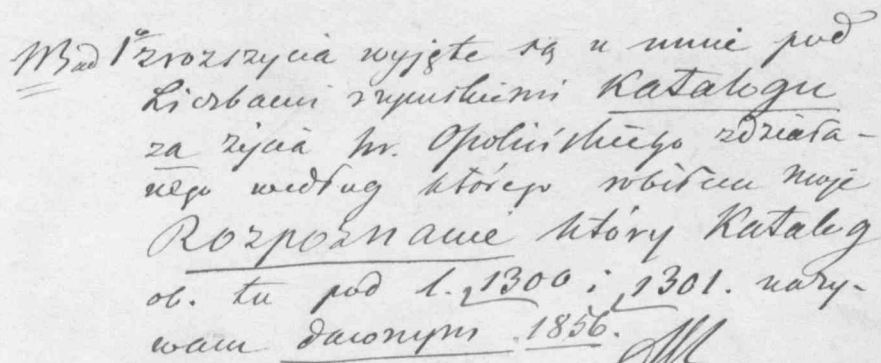 NB ad 1º z rozszycia wyjęte są u mnie pod
Liczbami wypustnimi Katalogu
za życia hr. Opolińskiego zdziała-
nego według którego robiłem moje
Rozpoznanie który Katalog
ob. tu pod l. 1300 i 1301. nazy-
wam dawnym 1856.